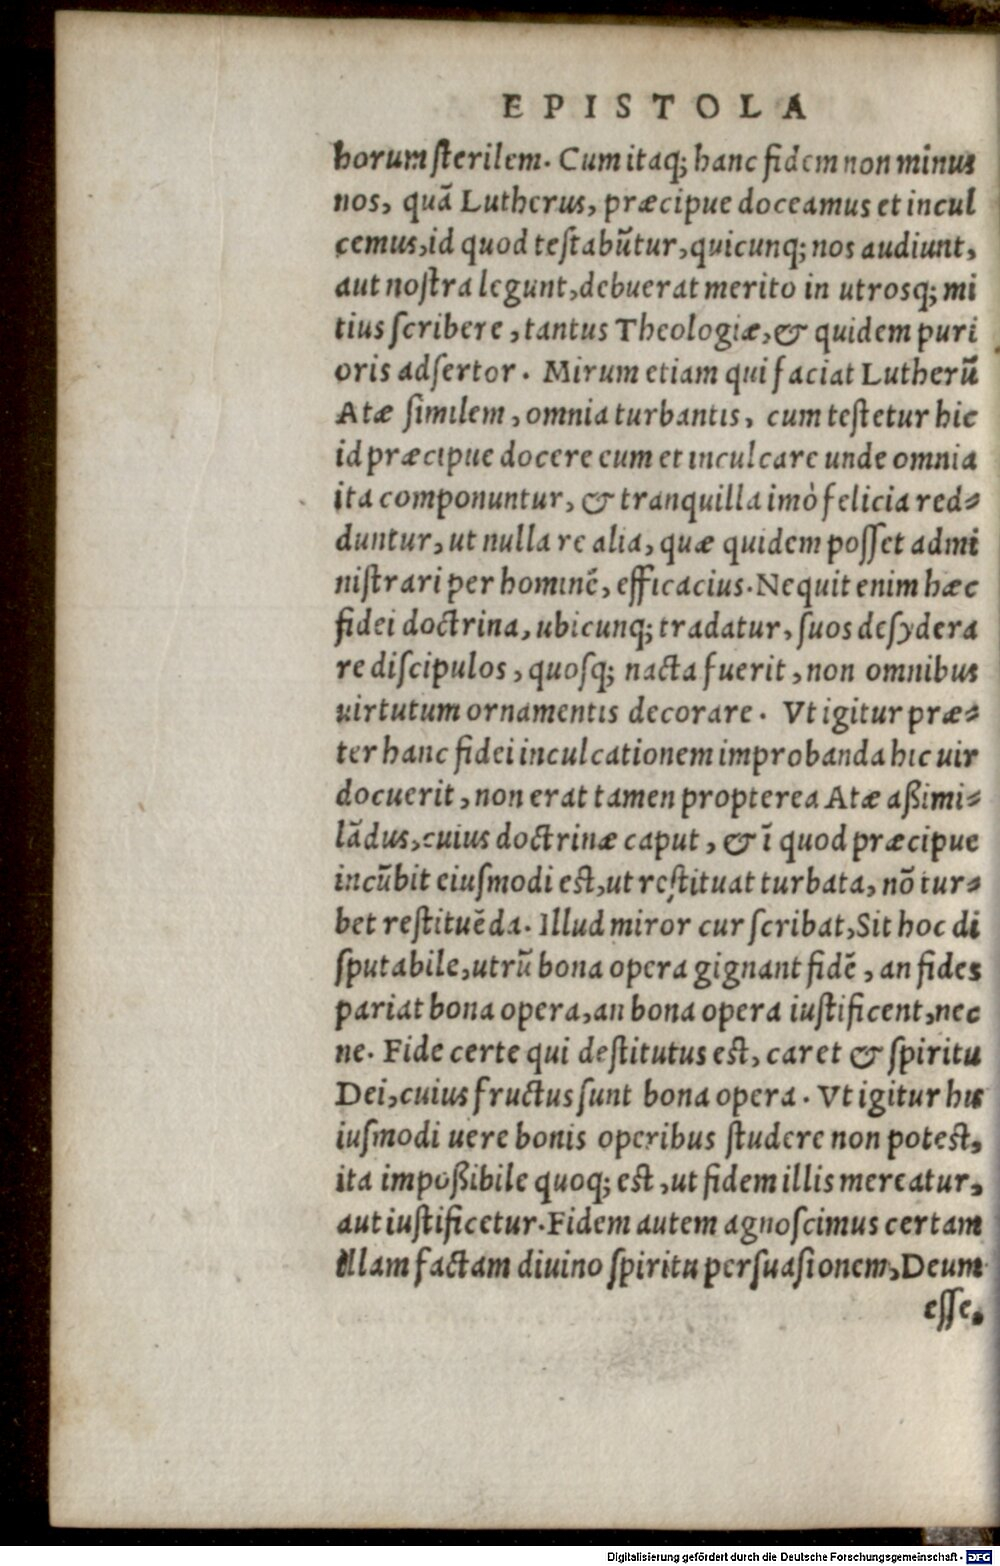 EPISTOLA
horum sterilem. Cum itaq; hanc fidem non minus
nos, quā Lutherus, præcipue doceamus et incul
cemus, id quod testabūtur, quicunq; nos audiunt,
aut nostra legunt, debuerat merito in utrosq; mi
tius scribere, tantus Theologiæ, & quidem puri
oris adsertor. Mirum etiam qui faciat Lutherū
Atæ similem, omnia turbantis, cum testetur hic
id præcipue docere eum et inculcare unde omnia
ita componuntur, & tranquilla imò felicia red-
duntur, ut nulla re alia, quæ quidem posset admi
nistrari per hominē, efficacius. Nequit enim hæc
fidei doctrina, ubicunq; tradatur, suos desydera
re discipulos, quosq; nacta fuerit, non omnibus
uirtutum ornamentis decorare. Vt igitur præ-
ter hanc fidei inculcationem improbanda hic uir
docuerit, non erat tamen propterea Atæ aßimi-
lādus, cuius doctrinæ caput, & ī quod præcipue
incūbit eiusmodi est, ut restituat turbata, nō tur-
bet restituēda. Illud miror cur scribat, Sit hoc di
sputabile, utrū bona opera gignant fidē, an fides
pariat bona opera, an bona opera iustificent, nec
ne. Fide certe qui destitutus est, caret & spiritu
Dei, cuius fructus sunt bona opera. Vt igitur hu
iusmodi uere bonis operibus studere non potest,
ita impoßibile quoq; est, ut fidem illis mereatur,
aut iustificetur. Fidem autem agnoscimus certam
illam factam diuino spiritu persuasionem, Deum
esse.
Digitalisierung gefördert durch die Deutsche Forschungsgemeinschaft - DFG